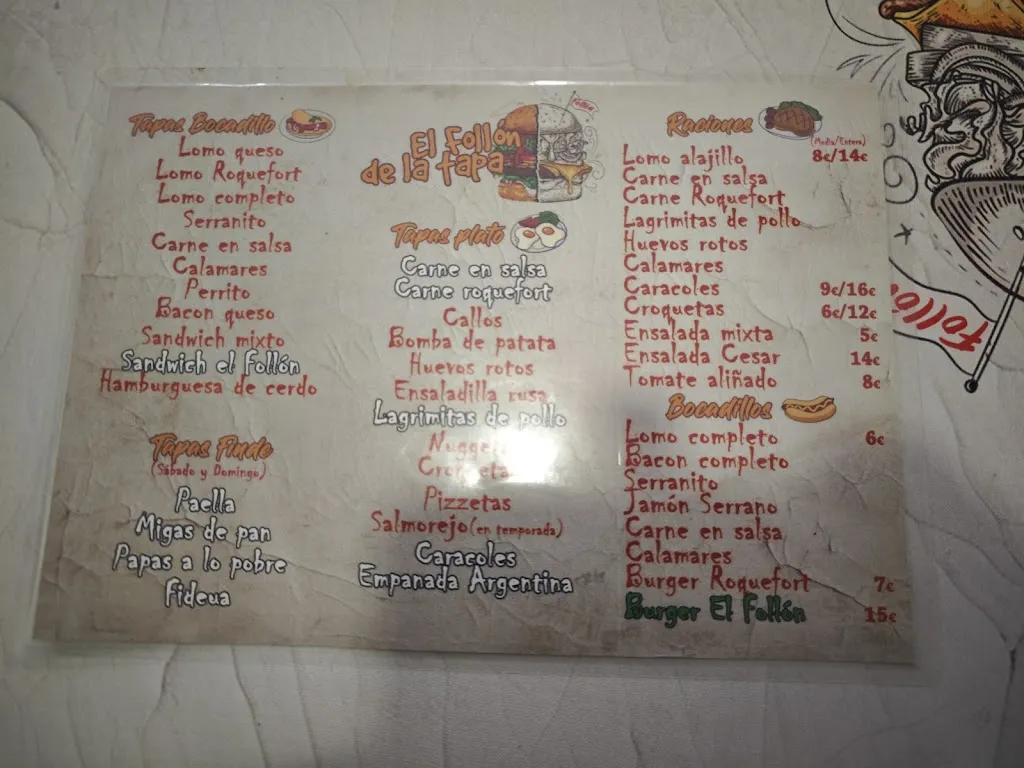 Tapas Bocadillo
Lomo queso
Lomo Roquefort
Lomo completo
Serranito
Carne en salsa
Calamares
Perrito
Bacon queso
Sandwich mixto
Sandwich el Follón
Hamburguesa de cerdo
Tapas Finde
(Sábado y Domingo)
Paella
Migas de pan
Papas a lo pobre
Fideua
El Follón
de la tapa
Tapas plato
Carne en salsa
Carne roquefort
Callos
Bomba de patata
Huevos rotos
Ensaladilla rusa
Lagrimitas de pollo
Pizzetas
Salmorejo (en temporada)
Caracoles
Empanada Argentina
Raciones
(Media/Entera)
Lomo alajillo 8€/14€
Carne en salsa
Carne Roquefort
Lagrimitas de pollo
Huevos rotos
Calamares
Caracoles 9€/16€
Croquetas 6€/12€
Ensalada mixta 5€
Ensalada Cesar 14€
Tomate aliñado 8€
Bocadillos
Lomo completo 6€
Bacon completo
Serranito
Jamón Serrano
Carne en salsa
Calamares
Burger Roquefort 7€
Burger El Follón 15€